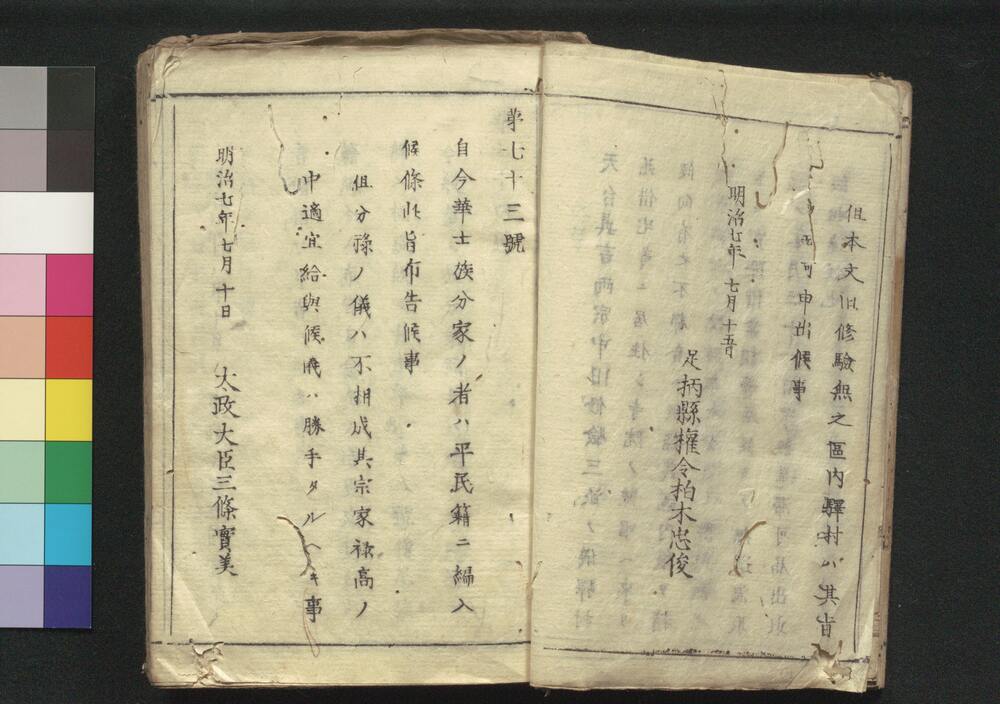 但本文旧修驗無之區内驛村ハ其旨
可申出候事
明治七年七月十五日
足柄縣權令柏木忠俊
第七十三號
自今華士族分家ノ者ハ平民籍ニ編入
候條此旨布告候事
但分祿ノ儀ハ不相成其宗家祿高ノ
中適宜給與候儀ハ勝手タルヘキ事
明治七年七月十日
太政大臣三條實美